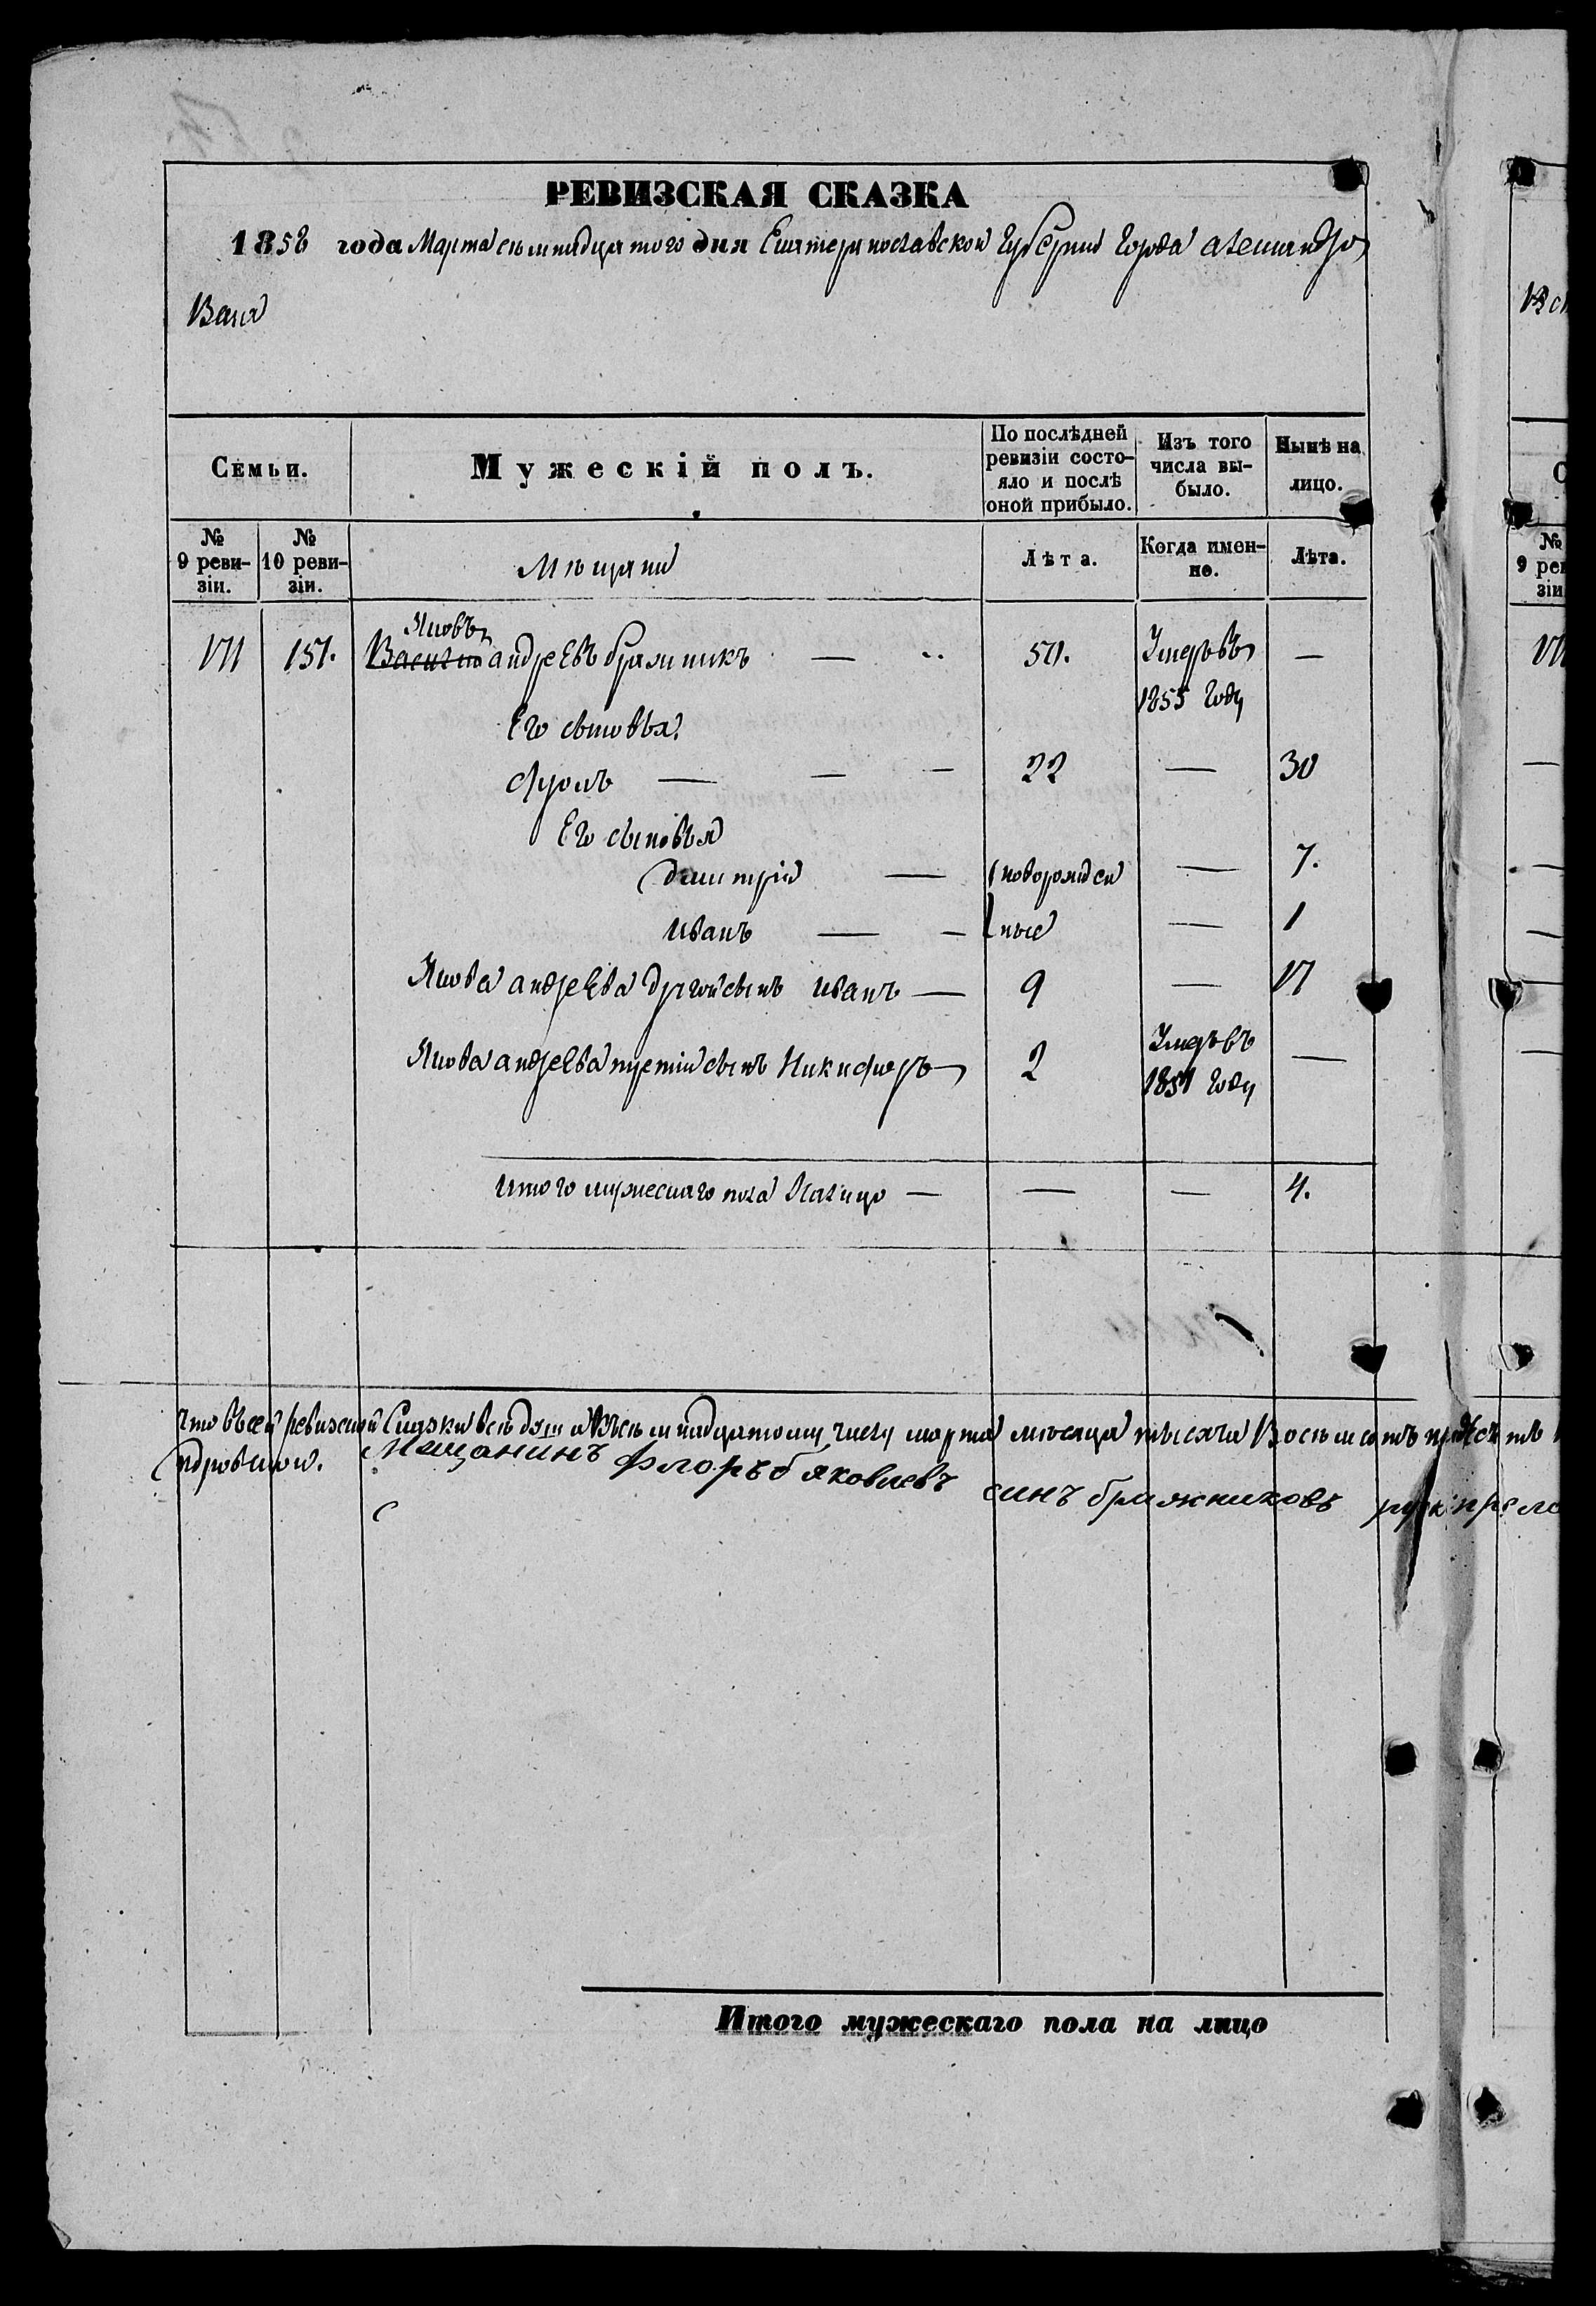 РЕВИЗСКАЯ СКАЗКА
1858 года Марта семнадцатого дня Екатеринославской Губернии Города александро
Вска
Семьи.
Мужескій полъ.
По послѣдней ревизіи состояло и послѣ оной прибыло.
Изъ того числа выбыло.
Нынѣ на лицо.
№ 9 ревизіи.
№ 10 ревизіи.
Мѣщани
Лѣта.
Когда именно.
Лѣта.
Яковъ
VII 151. Василио андреевъ бражникъ — 50. Умеръ въ —
1855 Году
Его сыновья.
Фролъ — — — 22 — 30
Его сыновья
Дмитрій — новорожден — 7.
Иванъ — — ные — 1
Якова андреева другой сынъ иванъ — 9 — 17
Якова андреева третій сынъ Никифоръ 2 Умеръ въ —
1851 Году
итого мужескаго пола Налицо — — — 4.
что въ сей ревизской Сказки всѣ души къ семнадцатому числу марта мѣсяца тысяча Восемсотъ
Мещанинъ Флоръ яковлевъ синъ бражниковъ
Итого мужескаго пола на лицо